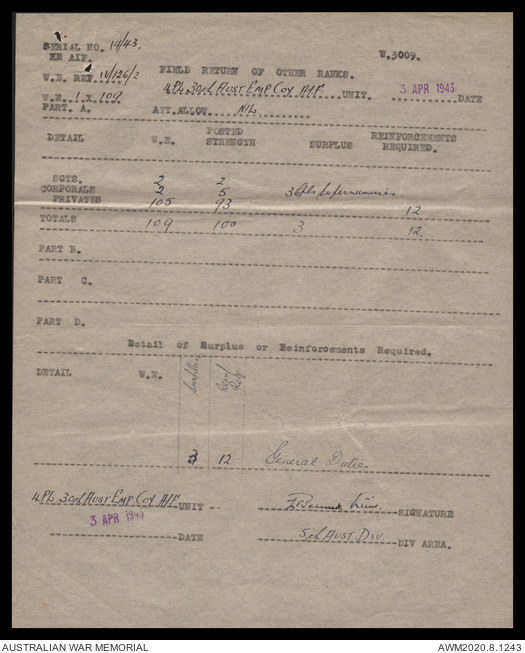 SERIAL NO. 14/43.
HE AIF. W.3009.
W.E. REF. IV/126/2
FIELD RETURN OF OTHER RANKS.
4 PL 30th AUST EMP COY AIF. UNIT. 3 APR 1943 DATE
W.E. 1 X 109
PART A. ATT.ALLOW. NIL
DETAIL W.E. POSTED STRENGTH SURPLUS REINFORCEMENTS REQUIRED.
SGTS. 2 2
CORPORALS 2 5 3 Cpls Supernumeries
PRIVATES 105 93 12
TOTALS 109 100 3 12
PART B.
PART C.
PART D.
Detail of Surplus or Reinforcements Required.
DETAIL W.E. Surplus Reinf Req
3 12 General Duties
4 PL 30th AUST EMP COY AIF UNIT SIGNATURE
3 APR 1943 DATE 5th AUST DIV. DIV AREA.
AUSTRALIAN WAR MEMORIAL AWM2020.8.1243